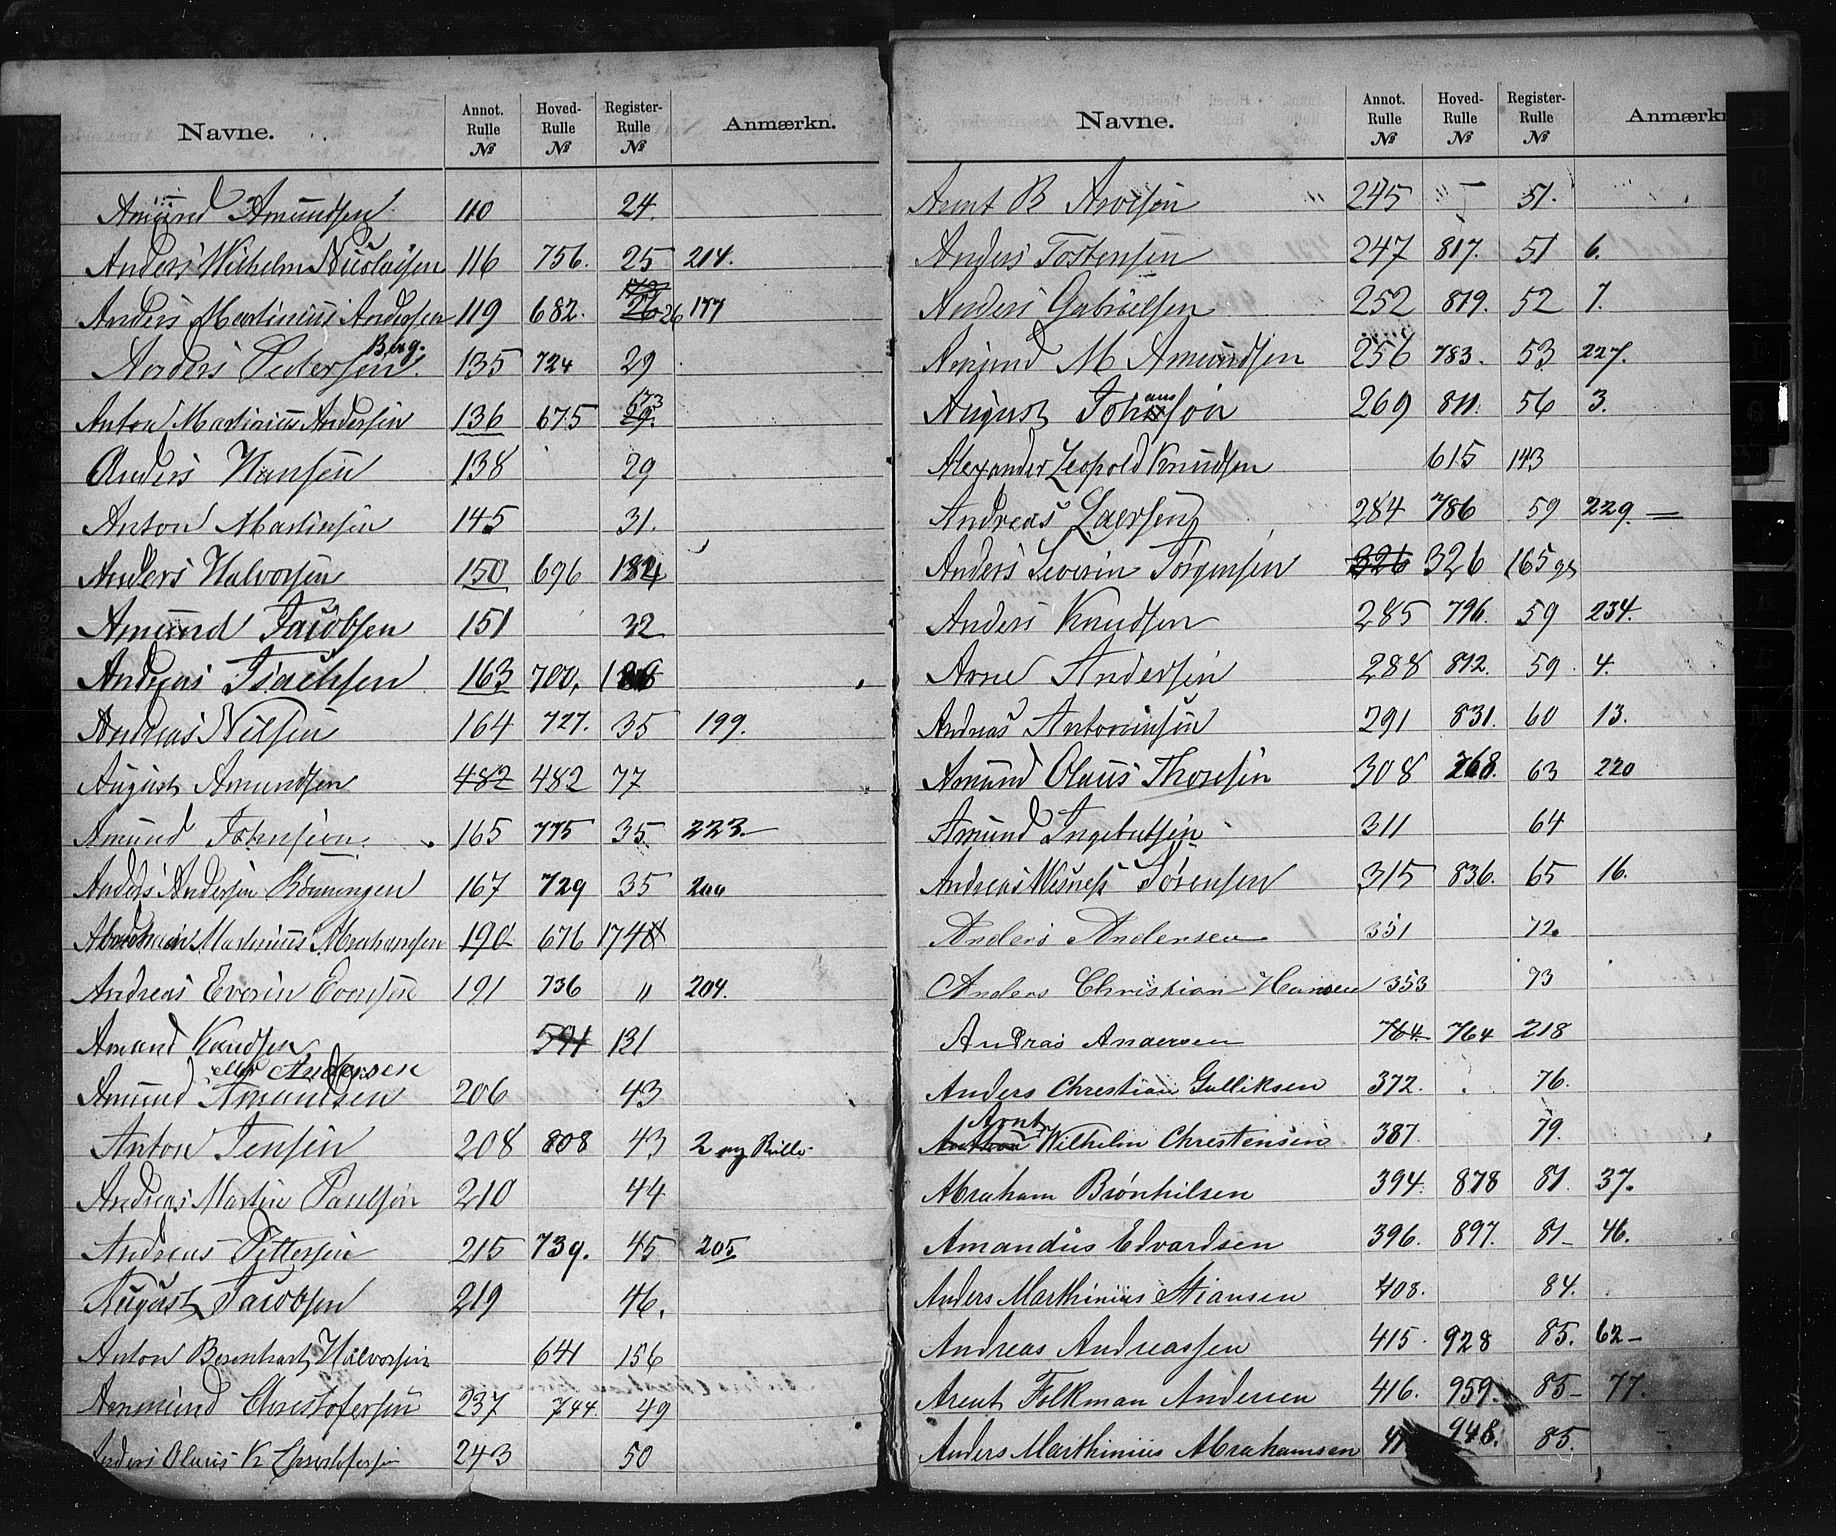 Navne. Annot. Rulle № Hoved- Rulle № Register- Rulle № Anmærkn.
Amund Amundsen 110 24
Anders Wilhelm Nicolaisen 116 756. 25 214.
Anders Martinius Andersen 119 682. 26 177
Anders Pedersen Berg. 135 724 29
Anton Martinius Andersen 136 675 173
Anders Hansen 138 29
Anton Martinsen 145 31.
Anders Halvorsen 150 696 184
Amund Jacobsen 151 32
Andreas Isachsen 163 700,
Andreas Nilsen 164 727. 35 199.
August Amundsen 482 482 77
Amund Johnsen 165 775 35 223.
Anders Andersen Rönningen 167 729 35 200
Abraham Martinius Abrahamsen 190 676 174
Andreas Everin Evensen 191 736 " 204.
Amund Knudsen 591 131
eller Andersen
Amund Amundsen 206 43
Anton Jensen 208 808 43 2 ny Rulle
Andreas Martin Paulsen 210 44
Andreas Pettersen 215 739. 45 205
August Jacobsen 219 46.
Anton Berenhart Halvorsen 641 156
Ammund Christofersen 237 744. 49
Anders Olaus K Christofersen 243 50
Navne. Annot. Rulle № Hoved- Rulle № Register- Rulle № Anmærkn
Arnt B Arvesen 245 51.
Anders Tostensen 247 817. 51 6.
Anders Gabrielsen 252 819. 52 7.
Amund M Amundsen 256 783. 53 227.
August Johansen 269 811. 56 3.
Alexander Leopold Knudsen 615 143
Andreas Laersen 284 786 59 229.
Anders Severin Jörgensen 326 326 165
Anders Knudsen 285 796. 59 234.
Arne Andersen 288 812. 59 4.
Andreas Antonsen 291 831. 60 13.
Amund Olaus Thoresen 308 768. 63 220
Amund Ingebretsen 311 64
Andreas Werness Sörensen 315 836. 65 16.
Anders Andersen 351 72
Anders Christian Hansen 353 73
Andras Andersen 764 764 218
Anders Chrestian Gulliksen 372. 76.
Arnt
Anthon Wilhelm Chrestensen 387. 79.
Abraham Brönhilsen 394. 878 81. 37.
Amandus Edvardsen 396. 897. 81 46.
Anders Marthinius Stiansen 408. 84.
Andreas Andreassen 415. 928 85. 62
Arent Folkman Andersen 416. 959. 85 77.
Anders Marthinius Abrahamsen 948. 85.